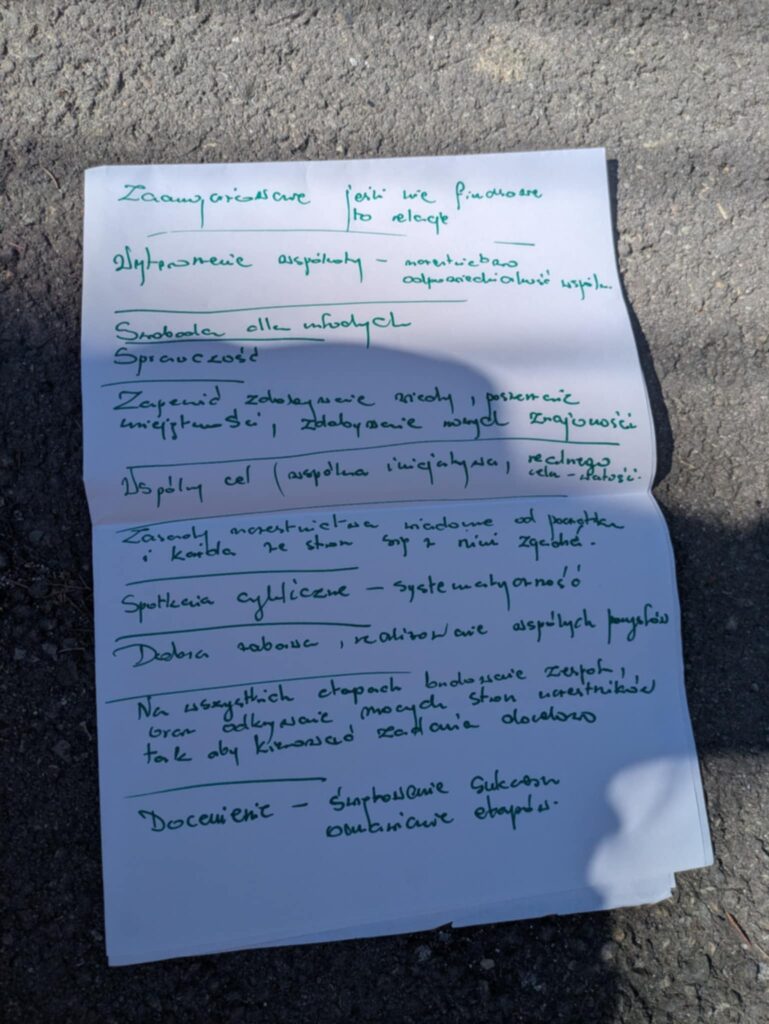 Zaangażowanie jeśli nie finansowe
to relacje
Wytworzenie wspólnoty – uczestnictwo
odpowiedzialność wspóln.
Swoboda dla młodych
Sprawczość
Zapewnić zdobywanie wiedzy, poszerzanie
umiejętności, zdobywanie nowych znajomości
Wspólny cel (wspólna inicjatywa, realnego
celu – wartości.
Zasady uczestnictwa wiadome od początku
i każda ze stron się z nimi zgadza.
Spotkania cykliczne – systematyczność
Dobra zabawa, realizowanie wspólnych pomysłów
Na wszystkich etapach budowanie zespołu,
oraz odkrywanie mocnych stron uczestników
tak aby kierować zadania docelowo
Docenienie – świętowanie sukcesu
omawianie etapów.